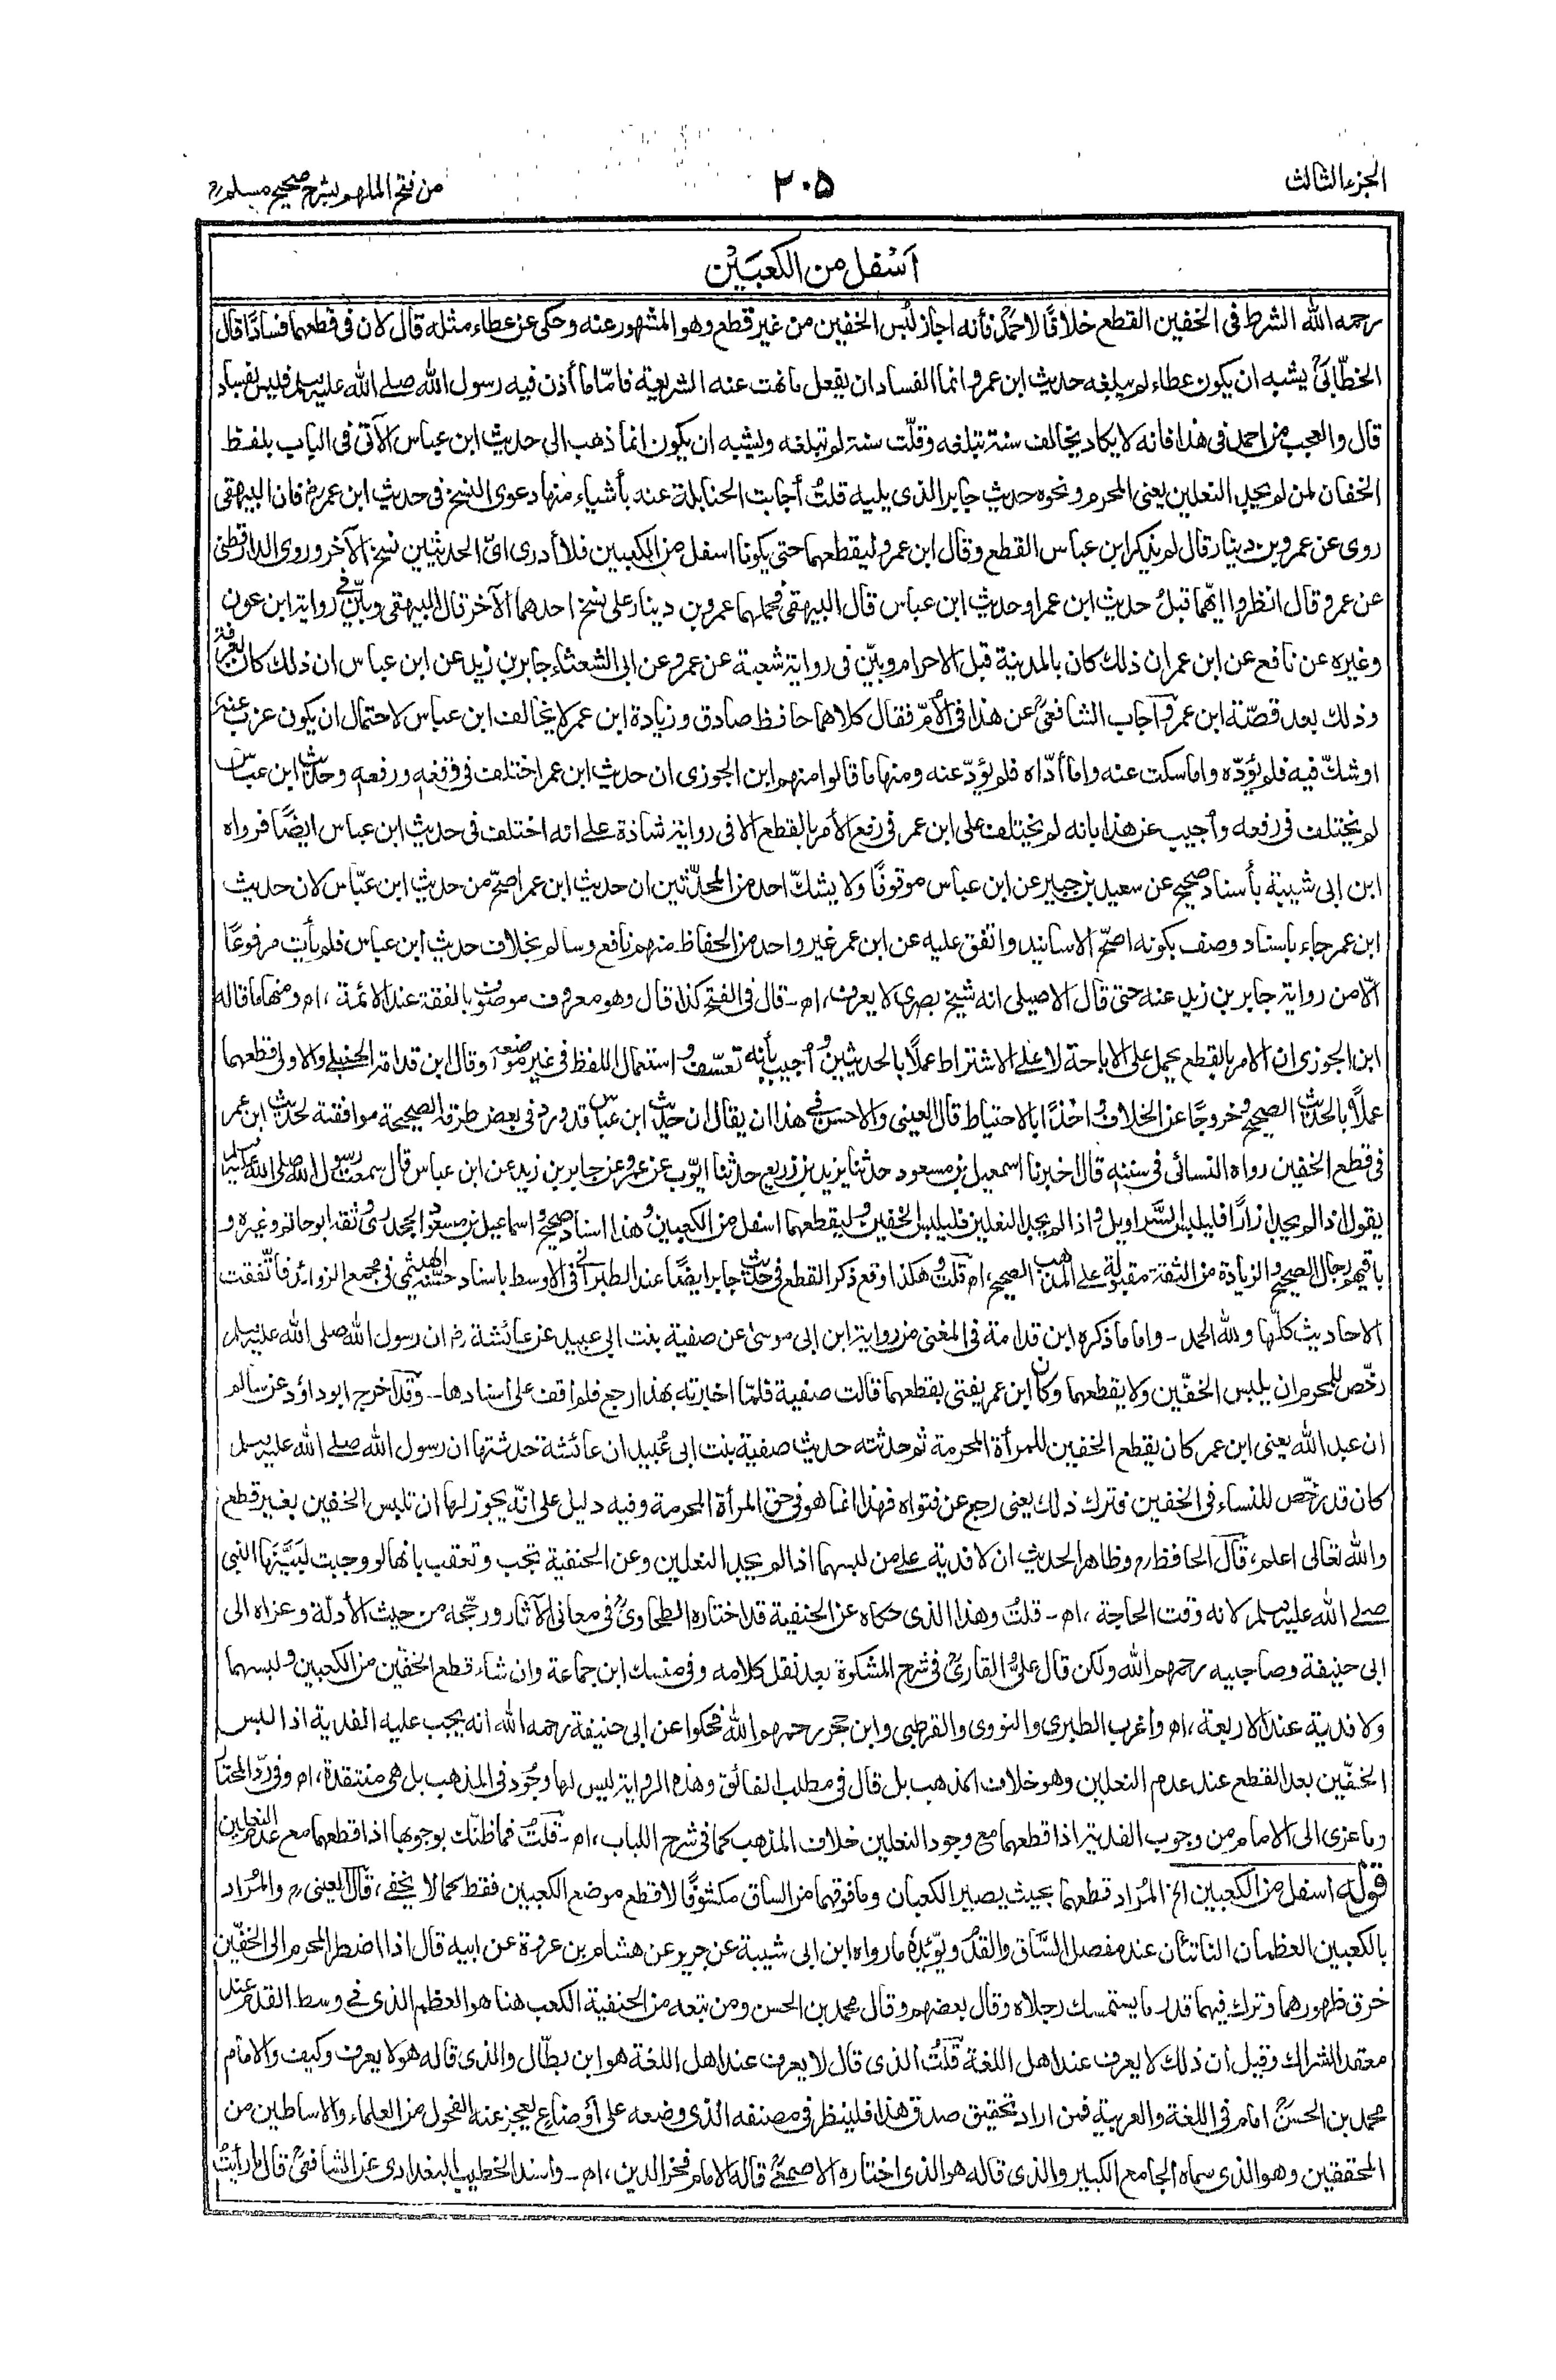 الجزء الثالث
٢٠٥
من فتح الملهم بشرح صحيح مسلم
اَسْفل من الكعبَيْن
رحمه الله الشرط فى الخفين القطع خلافًا لاحمد فأنه اجاز لُبس الخفين من غير قطع وهو المشهور عنه وحكى عن عطاء مثله قال لان فى قطعهما فسادًا قال
الخطّابىّ يشبه ان يكون عطاء لم يبلغه حديث ابن عمر وانما الفساد ان يفعل ما نهت عنه الشريعة فامّا ما أذن فيه رسول الله صلے الله عليه وسلم فليس بفساد
قال والعجب من احمد فى هذا فانه لا يكاد يخالف سنة تبلغه وقلّت سنة لم تبلغه ويشبه ان يكون انما ذهب الى حديث ابن عباس الآتى فى الباب بلفظ
الخفان لمن لم يجد النعلين يعنى المحرم ونحوه حديث جابر الذى يليه قلتُ أجابت الحنابلة عنه بأشياء منها دعوى النسخ فى حديث ابن عمر رض فان البيهقى
روى عن عمرو بن دينار قال لم يذكر ابن عباس القطع وقال ابن عمر وليقطعهما حتى يكونا اسفل من الكعبين فلا أدرى اىّ الحديثين نسخ الآخر وروى الدارقطنى
عن عمرو قال انظروا ايّهما قبلُ حديث ابن عمر او حديث ابن عباس قال البيهقى فحملهما عمرو بن دينار على نسخ احدهما الآخر قال البيهقى وبيّن فى رواية ابن عون
وغيره عن نافع عن ابن عمر ان ذلك كان بالمدينة قبل الاحرام وبيّن فى رواية شعبة عن عمرو عن ابى الشعثاء جابر بن زيد عن ابن عباس ان ذلك كان بعرفة
وذلك بعد قصّة ابن عمر وآجاب الشافعىّ عن هذا فى الأمّ فقال كلاهما حافظ صادق وزيادة ابن عمر لا يخالف ابن عباس لاحتمال ان يكون عزب عنه
او شكّ فيه فلم يؤدّه واما سكت عنه واما أدّاه فلم يؤدّ عنه ومنها ما قالوا منهم ابن الجوزى ان حديث ابن عمر اختلف فى وقفه ورفعه وحديث ابن عباس
لم يختلف فى رفعه وأجيب عن هذا بانه لم يختلف على ابن عمر فى رفع الأمر بالقطع الا فى رواية شاذة علے انه اختلف فى حديث ابن عباس ايضًا فرواه
ابن ابى شيبة بأسناد صحيح عن سعيد بن جبير عن ابن عباس موقوفًا ولا يشكّ احد من المحدّثين ان حديث ابن عمر اصحّ من حديث ابن عبّاس لان حديث
ابن عمر جاء باسناد وصف بكونه اصحّ الاسانيد واتفق عليه عن ابن عمر غير واحد من الحفاظ منهم نافع وسالم بخلاف حديث ابن عباس فلم يأت مرفوعًا
الّا من رواية جابر بن زيد عنه حتى قال الاصيلى انه شيخ بصرى لا يعرف، اه ـ قال فى الفتح كذا قال وهو معروف موصوف بالفقه عند الائمة، اه ومنها ما قاله
ابن الجوزى ان الامر بالقطع يحمل على الاباحة لا علے الاشتراط عملًا بالحديثين وأجيب بأنه تعسّف واستعمال اللفظ فى غير موضعه وقال ابن قدامة الحنبلے والاولى قطعهما
عملًا بالحديث الصحيح وخروجًا عن الخلاف واخذًا بالاحتياط قال العينى والاحسن فى هذا ان يقال ان حديث ابن عباس قد ورد فى بعض طرقه الصحيحة موافقة لحديث ابن عمر
فى قطع الخفين رواه النسائى فى سننه قال اخبرنا اسمعيل بن مسعود حدثنا يزيد بن زريع حدثنا ايوّب عن عمرو عن جابر بن زيد عن ابن عباس قال سمعت رسول الله صلى الله عليه وسلم
يقول اذا لم يجد ازارًا فليلبس السَّراويل واذا لم يجد النعلين فليلبس الخفين وليقطعهما اسفل من الكعبين وهذا اسناد صحيح واسماعيل بن مسعود الجحدرى وثقه ابو حاتم وغيره و
باقيهم رجال الصحيح والزيادة من الثقة مقبولة على المذهب الصحيح، اه قلت وهكذا وقع ذكر القطع فى حديث جابر ايضًا عند الطبرانى فى الاوسط باسناد حسّنه الهيثمى فى مجمع الزوائد فأتّفقت
الاحاديث كلّها ولله الحمد ـ واما ما ذكره ابن قدامة فى المغنى من رواية ابن ابى موسىٰ عن صفية بنت ابى عبيد عن عائشة رض ان رسول الله صلى الله عليه وسلم
رخّص للمحرم ان يلبس الخفّين ولا يقطعهما وكان ابن عمر يفتى بقطعهما قالت صفية فلمّا اخبرته بهذا رجع فلم اقف على اسنادها ـ وقد اخرج ابو داؤد عن سالم
ان عبد الله يعنى ابن عمر كان يقطع الخفين للمرأة المحرمة ثم حدثته حديث صفية بنت ابى عُبيد ان عائشة حدثتها ان رسول الله صلے الله عليه وسلم
كان قد رخّص للنساء فى الخفين فترك ذلك يعنى رجع عن فتواه فهذا انما هو فى حق المرأة المحرمة وفيه دليل على انّه يجوز لها ان تلبس الخفين بغير قطع
والله تعالى اعلم، قال الحافظ رح وظاهر الحديث ان لا فدية علے من لبسهما اذا لم يجد النعلين وعن الحنفية تجب وتعقب بانها لو وجبت لبَيَّنَها النبى
صلے الله عليه وسلم لانه وقت الحاجة، اه ـ قلتُ وهذا الذى حكاه عن الحنفية قد اختاره الطحاوىّ فى معانى الآثار ورجّحه من حيث الأدلّة وعزاه الى
ابى حنيفة وصاحبيه رحمهم الله ولكن قال علىّ القارىّ فى شرح المشكوة بعد نقل كلامه وفى منسك ابن جماعة وان شاء قطع الخفّين من الكعبين ولبسهما
ولا فدية عند الاربعة، اه واغرب الطبرى والنووى والقرطبى وابن حجر رحمهم الله فحكوا عن ابى حنيفة رحمه الله انه يجب عليه الفدية اذا لبس
الخفّين بعد القطع عند عدم النعلين وهو خلاف المذهب بل قال فى مطلب الفائق وهذه الرواية ليس لها وجُود فى المذهب بل هى منتقدة، اه وفى ردّ المحتار
وما عزى الى الامام من وجوب الفدية اذا قطعهما مع وجود النعلين خلاف المذهب كما فى شرح اللباب، اه ـ قلتُ فما ظنّك بوجوبها اذا قطعهما مع عدم النعلين
قوله اسفل من الكعبين الخ المُراد قطعهما بحيث يصير الكعبان وما فوقهما من الساق مكشوفًا لا قطع موضع الكعبين فقط كما لا يخفے، قال العينى رح والمُراد
بالكعبين العظمان الناتئان عند مفصل السَّاق والقدم ويؤيّده ما رواه ابن ابى شيبة عن جرير عن هشام بن عروة عن ابيه قال اذا اضطر المحرم الى الخفّين
خرق ظهورهما وترك فيهما قدر ما يستمسك رجلاه وقال بعضهم وقال محمد بن الحسن ومن تبعه من الحنفية الكعب هنا هو العظم الذى فى وسط القدم عند
معقد الشراك وقيل ان ذلك لا يعرف عند اهل اللغة قلتُ الذى قال لا يعرف عند اهل اللغة هو ابن بطّال والذى قاله هو لا يعرف وكيف والامام
محمد بن الحسن امام فى اللغة والعربية فمن اراد تحقيق صدق هذا فلينظر فى مصنفه الذى وضعه على أوضاعٍ يعجز عنه الفحول من العلماء والاساطين من
المحققين وهو الذى سماه الجامع الكبير والذى قاله هو الذى اختاره الاصمعىّ قاله الامام فخر الدين، اه ـ واسند الخطيب البغدادى عن الشافعىّ قال ما رأيتُ